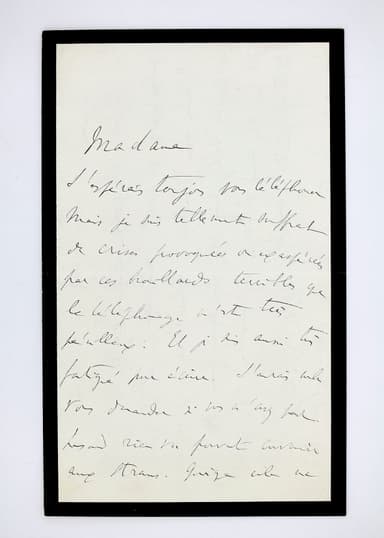 Madame
J'espérais toujours vous téléphoner
Mais je suis tellement souffrant
de crises provoquées ou exaspérées
par ces brouillards terribles que
le téléphonage m'est très
périlleux. Et je suis aussi très
fatigué pour écrire. J'aurais voulu
vous demander si vous n'avez
rien ne pouvait convenir
aux Straus. Quoique cela ne